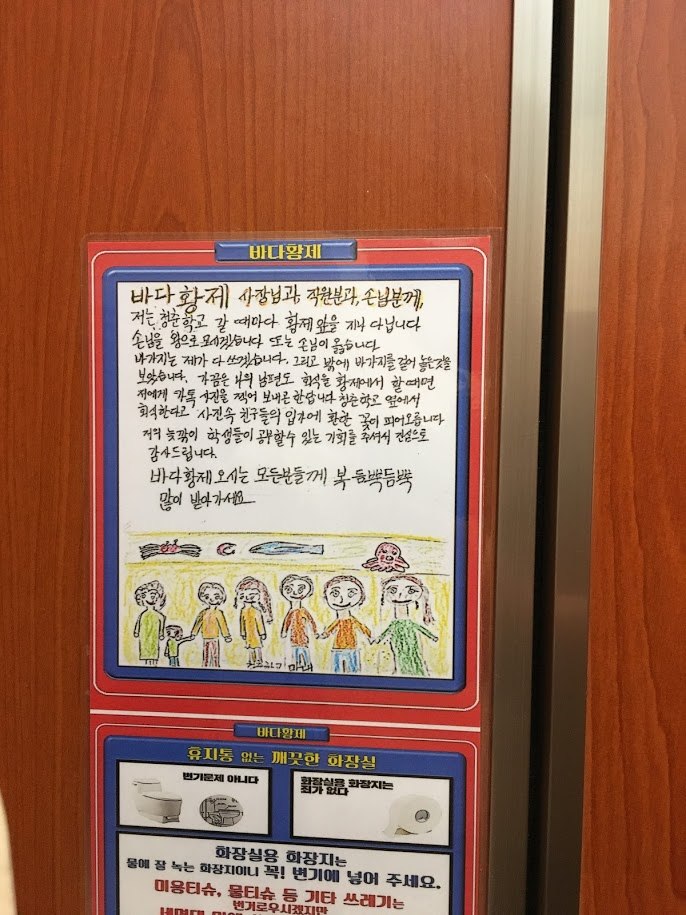 바다황제
바다황제 사장님과, 직원분과, 손님분께,
저는 청춘학교 갈 때마다 황제 앞을 지나 다닙니다
손님을 왕으로 모시겠습니다 또는 손님이 옳습니다
바가지는 제가 다 쓰겠습니다. 그리고 밖에 바가지를 걸어 놓은것을
보았습니다. 가끔은 나의 남편도 회식을 황제에서 할 때면
저에게 카톡 사진을 찍어 보내곤 한답니다 청춘학교 옆에서
회식한다고 사진속 친구들의 입가에 환한 꽃이 피어오릅니다
저의 늦깎이 학생들이 공부할수 있는 기회를 주셔서 진심으로
감사드립니다.
바다황제 오시는 모든분들께 복 듬뿍듬뿍
많이 받아가세요
바다황제
휴지통 없는 깨끗한 화장실
변기문제 아니다
화장실용 화장지는
죄가 없다
화장실용 화장지는
물에 잘 녹는 화장지이니 꼭! 변기에 넣어 주세요.
미용티슈, 물티슈 등 기타 쓰레기는
번거로우시겠지만